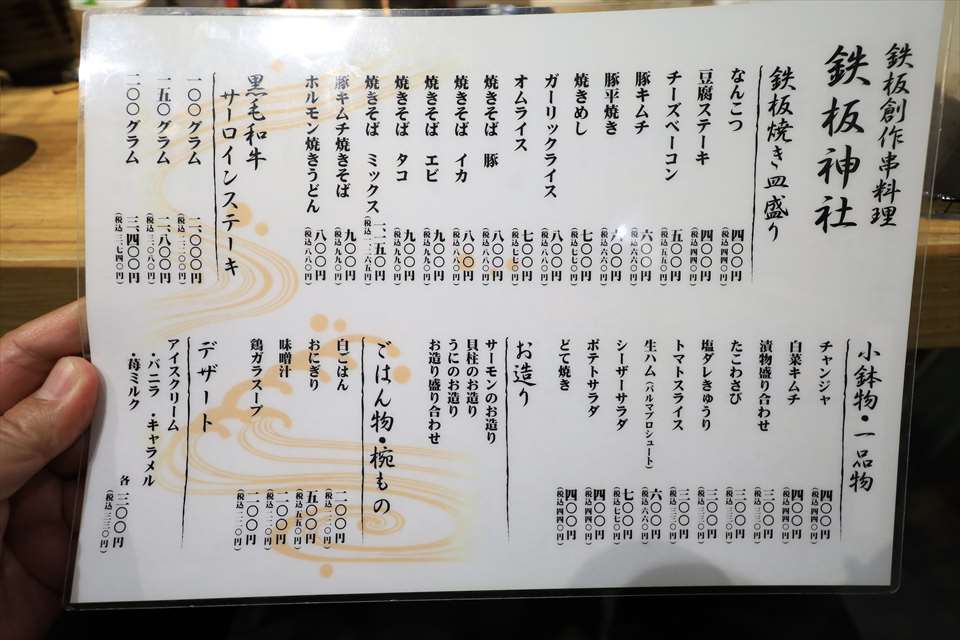 鉄板創作串料理
鉄板神社
鉄板焼き皿盛り
なんこつ 四〇〇円(税込四四〇円)
豆腐ステーキ 四〇〇円(税込四四〇円)
チーズベーコン 五〇〇円(税込五五〇円)
豚キムチ 六〇〇円(税込六六〇円)
豚平焼き 六〇〇円(税込六六〇円)
焼きめし 七〇〇円(税込七七〇円)
ガーリックライス 八〇〇円(税込八八〇円)
オムライス 七〇〇円(税込七七〇円)
焼きそば 豚 八〇〇円(税込八八〇円)
焼きそば イカ 八〇〇円(税込八八〇円)
焼きそば エビ 九〇〇円(税込九九〇円)
焼きそば タコ 九〇〇円(税込九九〇円)
焼きそば ミックス 一、一五〇円(税込一、二六五円)
豚キムチ焼きそば 九〇〇円(税込九九〇円)
ホルモン焼きうどん 八〇〇円(税込八八〇円)
黒毛和牛
サーロインステーキ
一〇〇グラム 二、〇〇〇円(税込二、二〇〇円)
一五〇グラム 二、八〇〇円(税込三、〇八〇円)
二〇〇グラム 三、四〇〇円(税込三、七四〇円)
小鉢物・一品物
チャンジャ 四〇〇円(税込四四〇円)
白菜キムチ 四〇〇円(税込四四〇円)
漬物盛り合わせ 三〇〇円(税込三三〇円)
たこわさび 三〇〇円(税込三三〇円)
塩ダレきゅうり 三〇〇円(税込三三〇円)
トマトスライス 三〇〇円(税込三三〇円)
生ハム(パルマプロシュート) 六〇〇円(税込六六〇円)
シーザーサラダ 七〇〇円(税込七七〇円)
ポテトサラダ 四〇〇円(税込四四〇円)
どて焼き 四〇〇円(税込四四〇円)
お造り
サーモンのお造り
貝柱のお造り
うにのお造り
お造り盛り合わせ
ごはん物・椀もの
白ごはん 二〇〇円(税込二二〇円)
おにぎり 五〇〇円(税込五五〇円)
味噌汁 二〇〇円(税込二二〇円)
鶏ガラスープ 二〇〇円(税込二二〇円)
デザート
アイスクリーム
・バニラ ・キャラメル
・苺ミルク
各 三〇〇円(税込三三〇円)